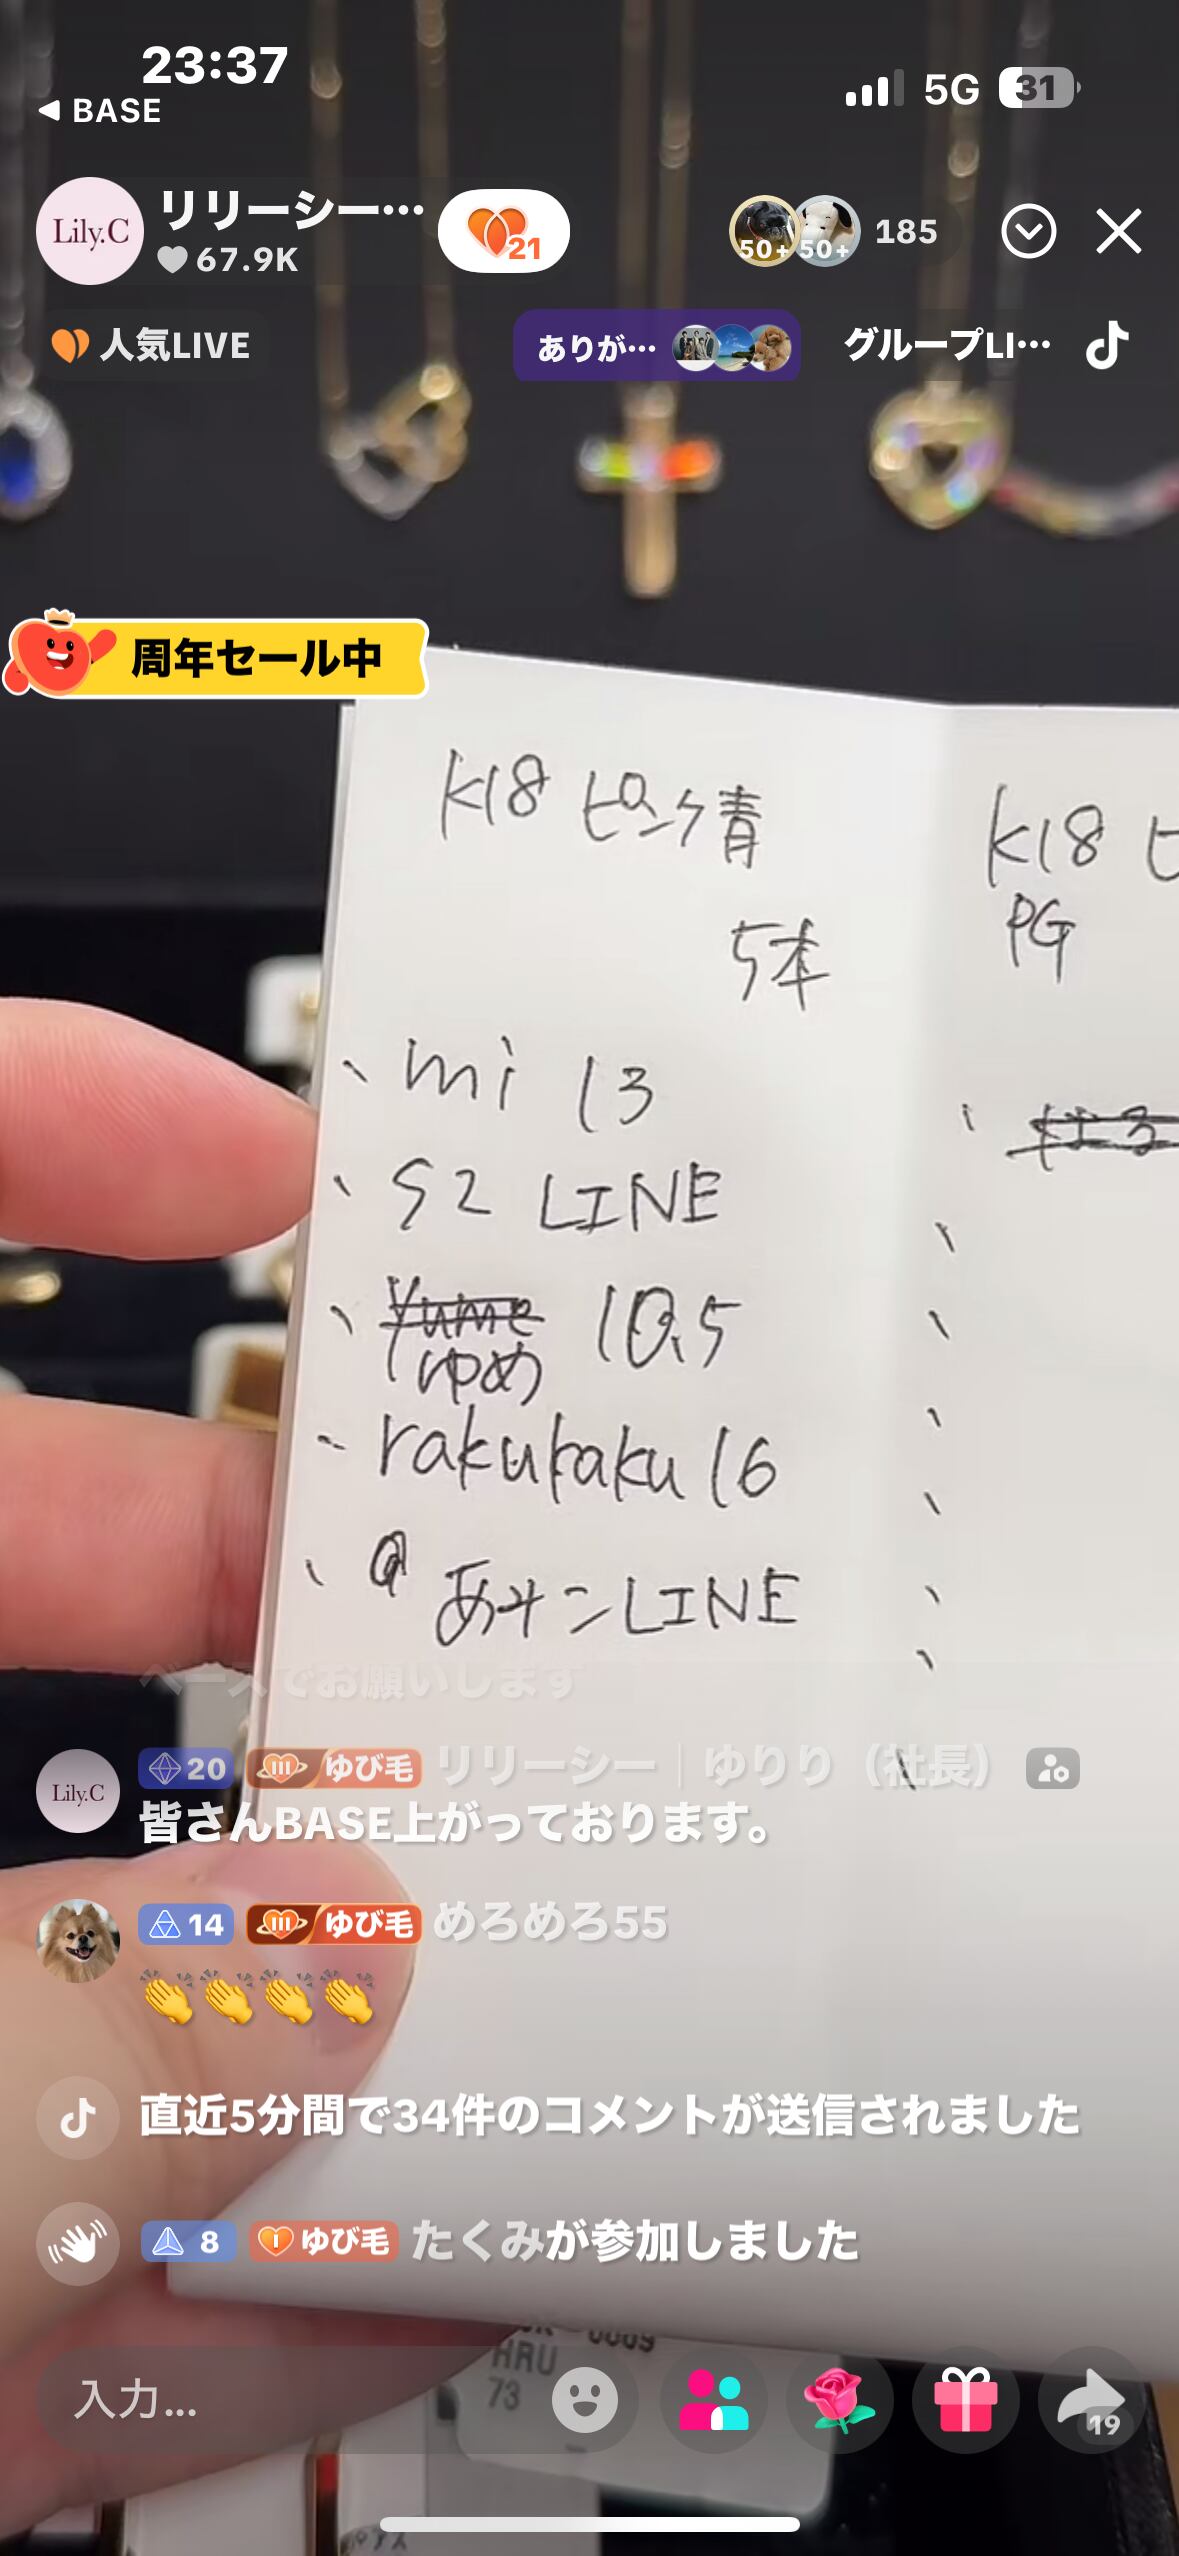 23:37
BASE
5G
31
Lily.C
リリーシー…
67.9K
21
50+
50+
185
人気LIVE
ありが…
グループLI…
周年セール中
K18 ピンク青
5本
mi 13
S2 LINE
Yume 10.5
ゆめ
rakuraku 16
LINE
K18 ピ
PG
ベースでお願いします
Lily.C
20 III ゆび毛 リリーシー｜ゆりり（社長）
皆さんBASE上がっております。
14 III ゆび毛 めろめろ55
👏👏👏👏
直近5分間で34件のコメントが送信されました
8 I ゆび毛 たくみが参加しました
HRU
73
入力...
19